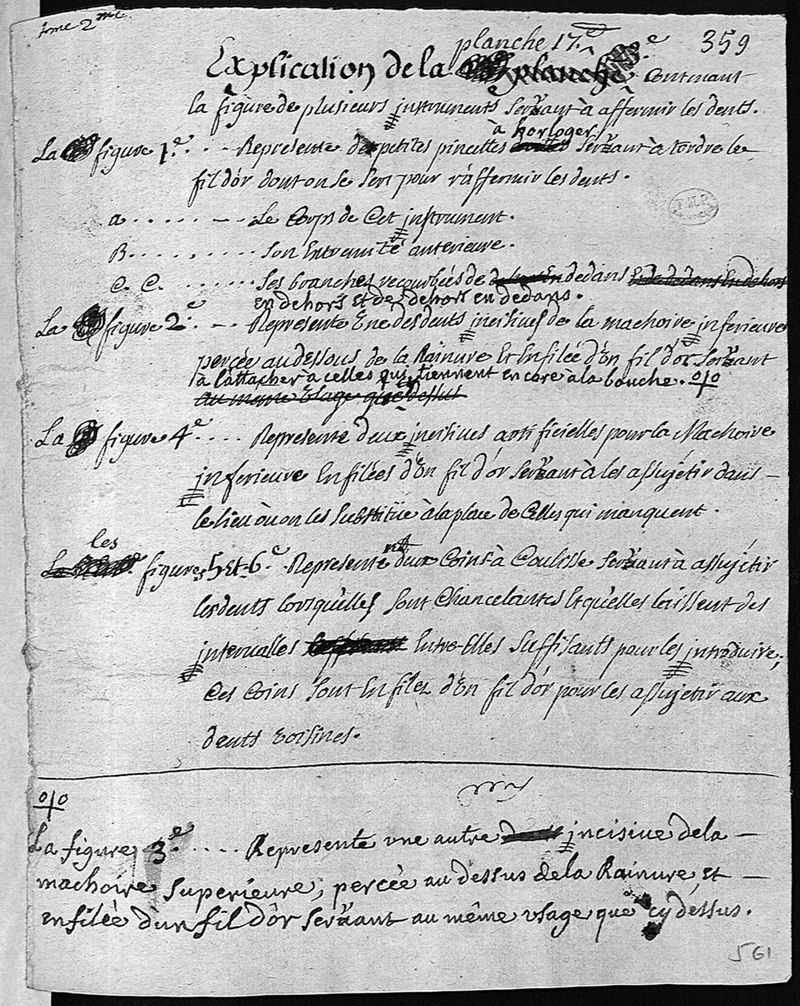 tome 2me
359
planche 17.e
Explication de la planche e Contenant
la figure de plusieurs instruments servant à affermir les dents.
à horloger
La figure 1.e .... Represente des petites pincettes servant à tordre le
fil d'or dont on se sert pour r'affermir les dents.
a ....... Le Corps de Cet instrument.
B ....... Son Extremité anterieure.
C. C. ...... Ses branches recourbées de dedans
en dehors et de dehors en dedans.
La figure 2.e .. Represente Une des dents incisives de la machoire inferieure
percée au dessous de la Rainure Et Enfilée d'un fil d'or servant
à l'attacher à celles qui tiennent encore à la bouche. o|o
au meme Usage que dessus
La figure 4.e .... Represente deux incisives artificielles pour la Machoire
inferieure Enfilées d'un fil d'or servant à les assujétir dans
le lieu où on les substitue à la place de Celles qui manquent.
les
figures 5 et 6.e Representent deux Coins à Coulisse servant à assujétir
les dents lorsqu'elles sont Chancelantes Et qu'elles laissent des
intervalles Entre-Elles suffisants pour les introduire;
Ces Coins sont Enfilez d'un fil d'or pour les assujetir aux
dents voisines.
o|o
La figure 3.e ..... Represente vne autre incisive de la
machoire superieure, percée au dessus de la Rainure, et
enfilée d'un fil d'ôr servant au même vsage que cy dessus.
561